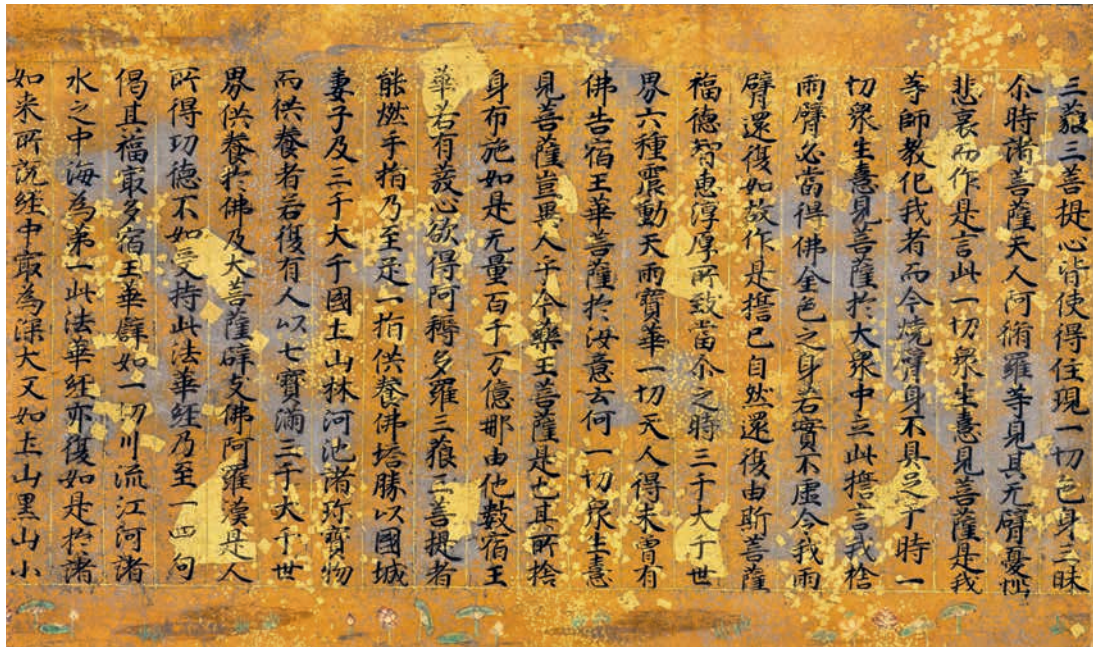 三藐三菩提心皆使得住現一切色身三昧
尒時諸菩薩天人阿脩羅等見其无臂憂惱
悲哀而作是言此一切衆生憙見菩薩是我
等師教化我者而今燒臂身不具足于時一
切衆生憙見菩薩於大衆中立此誓言我捨
兩臂必當得佛金色之身若實不虛令我兩
臂還復如故作是誓已自然還復由斯菩薩
福德智惠淳厚所致當尒之時三千大千世
界六種震動天雨寶華一切天人得未曾有
佛告宿王華菩薩於汝意云何一切衆生憙
見菩薩豈異人乎今藥王菩薩是也其所捨
身布施如是无量百千万億那由他數宿王
華若有發心欲得阿耨多羅三藐三菩提者
能燃手指乃至足一指供養佛塔勝以國城
妻子及三千大千國土山林河池諸珎寶物
而供養者若復有人以七寶滿三千大千世
界供養於佛及大菩薩辟支佛阿羅漢是人
所得功德不如受持此法華経乃至一四句
偈其福冣多宿王華譬如一切川流江河諸
水之中海為第一此法華経亦復如是於諸
如来所說経中冣為深大又如土山黒山小